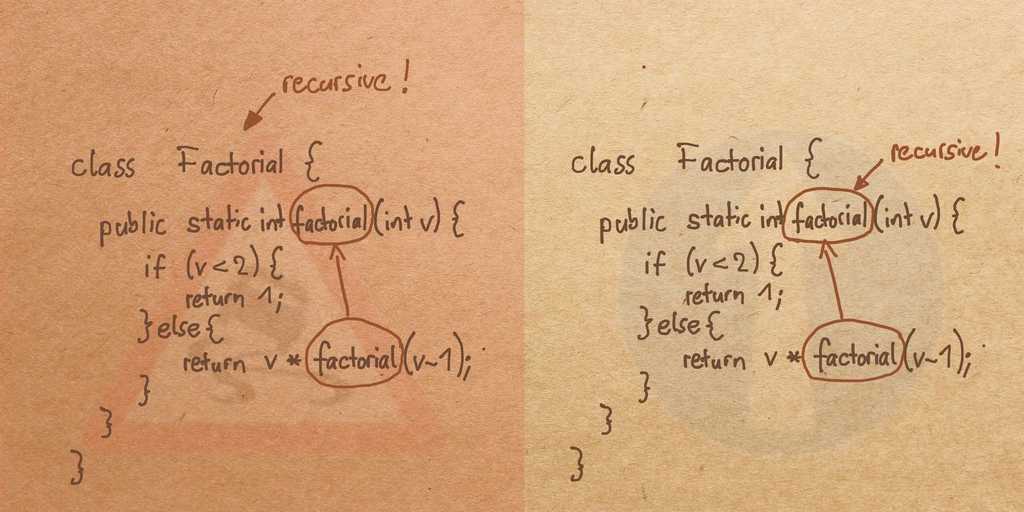 recursive!
class Factorial {
public static int factorial (int v) {
if (v < 2) {
return 1;
} else {
return v * factorial (v-1);
}
}
}
recursive!
class Factorial {
public static int factorial (int v) {
if (v < 2) {
return 1;
} else {
return v * factorial (v-1);
}
}
}